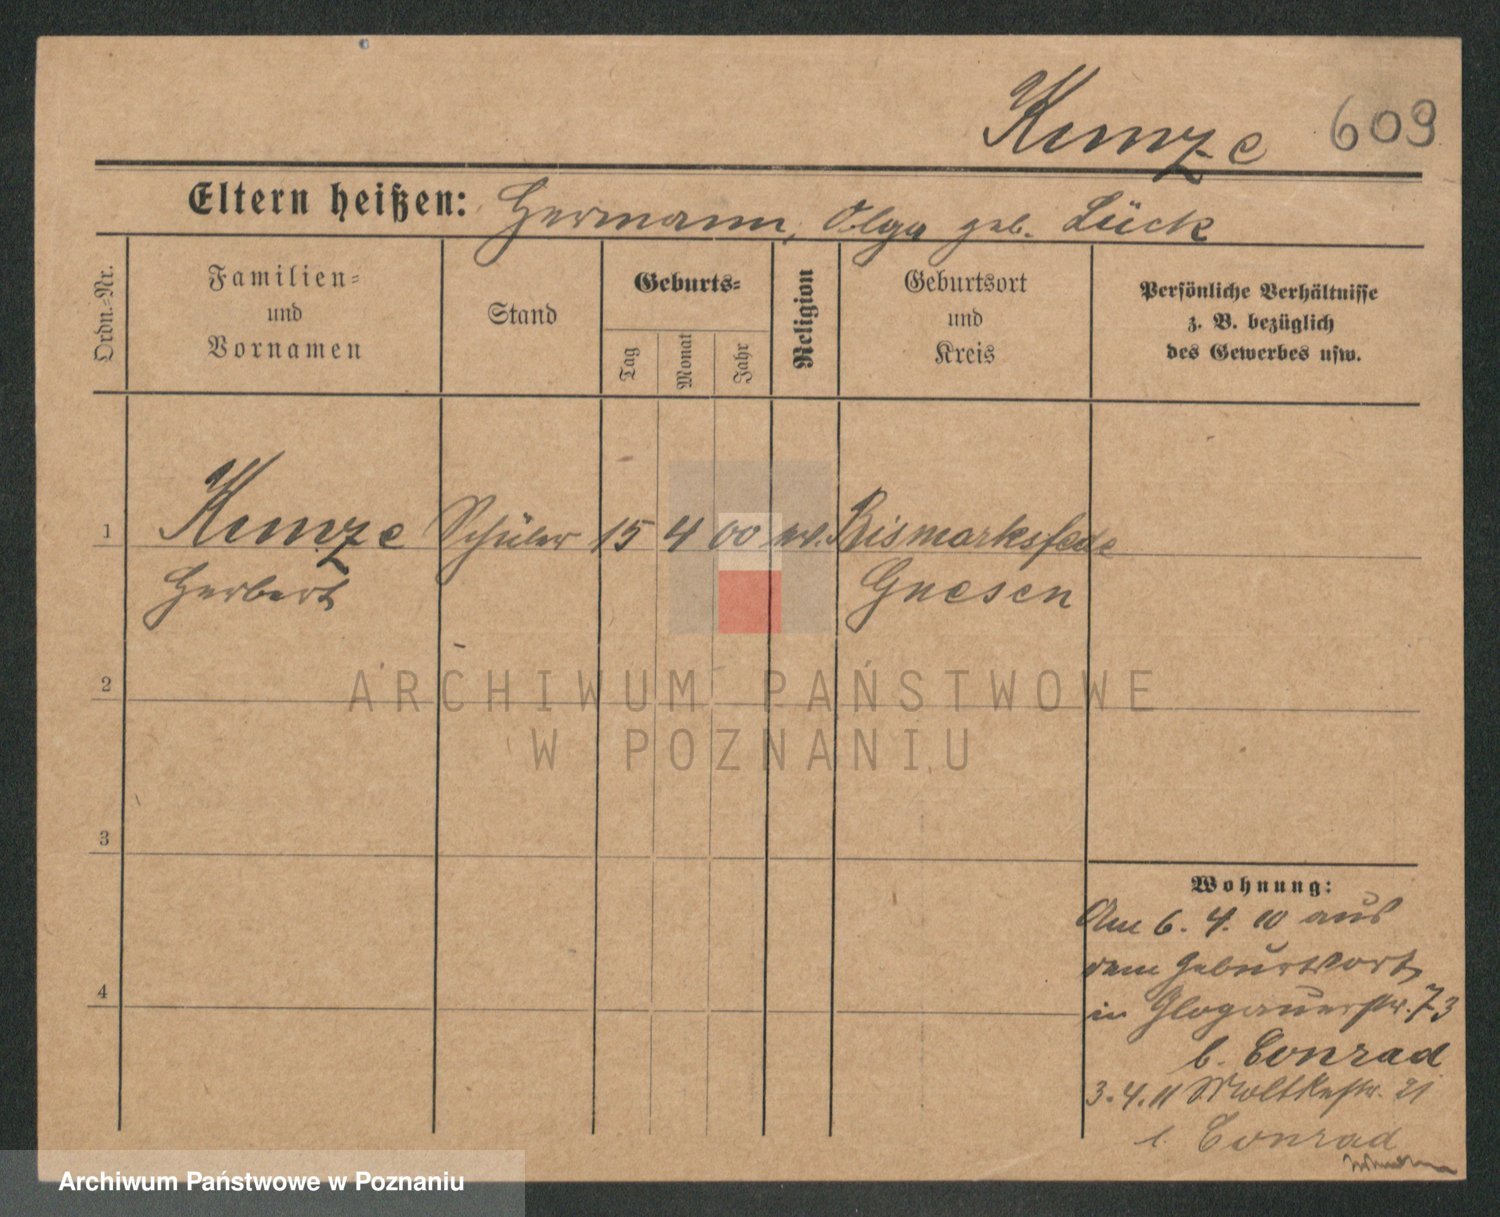 Kunze 609
Eltern heißen: Hermann, Olga geb. Lück
Ordn.-Nr.
Familien-
und
Vornamen
Stand
Geburts-
Tag
Monat
Jahr
Religion
Geburtsort
und
Kreis
Persönliche Verhältnisse
z. B. bezüglich
des Gewerbes usw.
1 Kunze Schüler 15 4 00 ev. Bismarksfelde
Herbert Gnesen
2
3
4
Wohnung:
Am 6. 4. 10 aus
dem Geburtsort
in Glogauerstr. 73
b. Conrad
3. 4. 11 Moltkestr. 21
b. Conrad
ARCHIWUM PAŃSTWOWE
W POZNANIU
Archiwum Państwowe w Poznaniu